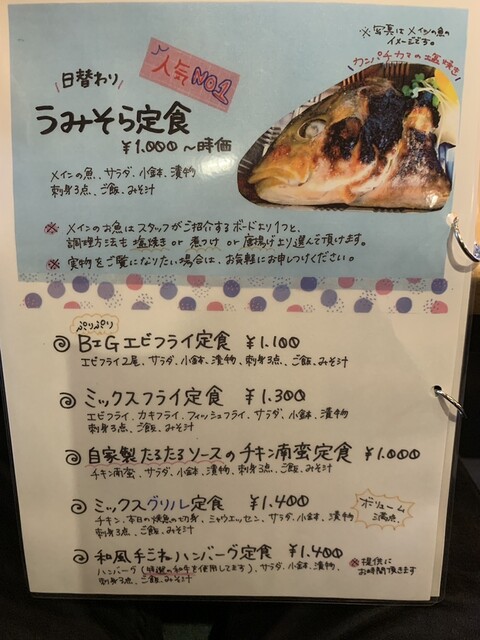 ※写真はメインの魚の
イメージです。
カンパチカマの塩焼き
人気NO1
日替わり
うみそら定食
¥1,000〜時価
メインの魚、サラダ、小鉢、漬物
刺身3点、ご飯、みそ汁
※ メインのお魚はスタッフがご紹介するボードより1つと、
調理方法も塩焼き or 煮つけ or 唐揚げより選んで頂けます。
※ 実物をご覧になりたい場合は、お気軽にお申しつけください。
ぷりぷり
BIGエビフライ定食 ¥1.100
エビフライ2尾、サラダ、小鉢、漬物、刺身3点、ご飯、みそ汁
ミックスフライ定食 ¥1.300
エビフライ、カキフライ、フィッシュフライ、サラダ、小鉢、漬物
刺身3点、ご飯、みそ汁
自家製たるたるソースのチキン南蛮定食 ¥1.000
チキン南蛮、サラダ、小鉢、漬物、刺身3点、ご飯、みそ汁
ミックスグリル定食 ¥1.400
ボリューム
満点
チキン、本日の焼魚の切身、シャウエッセン、サラダ、小鉢、漬物、
刺身3点、ご飯、みそ汁
和風手ごねハンバーグ定食 ¥1.400
ハンバーグ(特選の和牛を使用してます)、サラダ、小鉢、漬物、
刺身3点、ご飯、みそ汁
※提供に
お時間頂きます